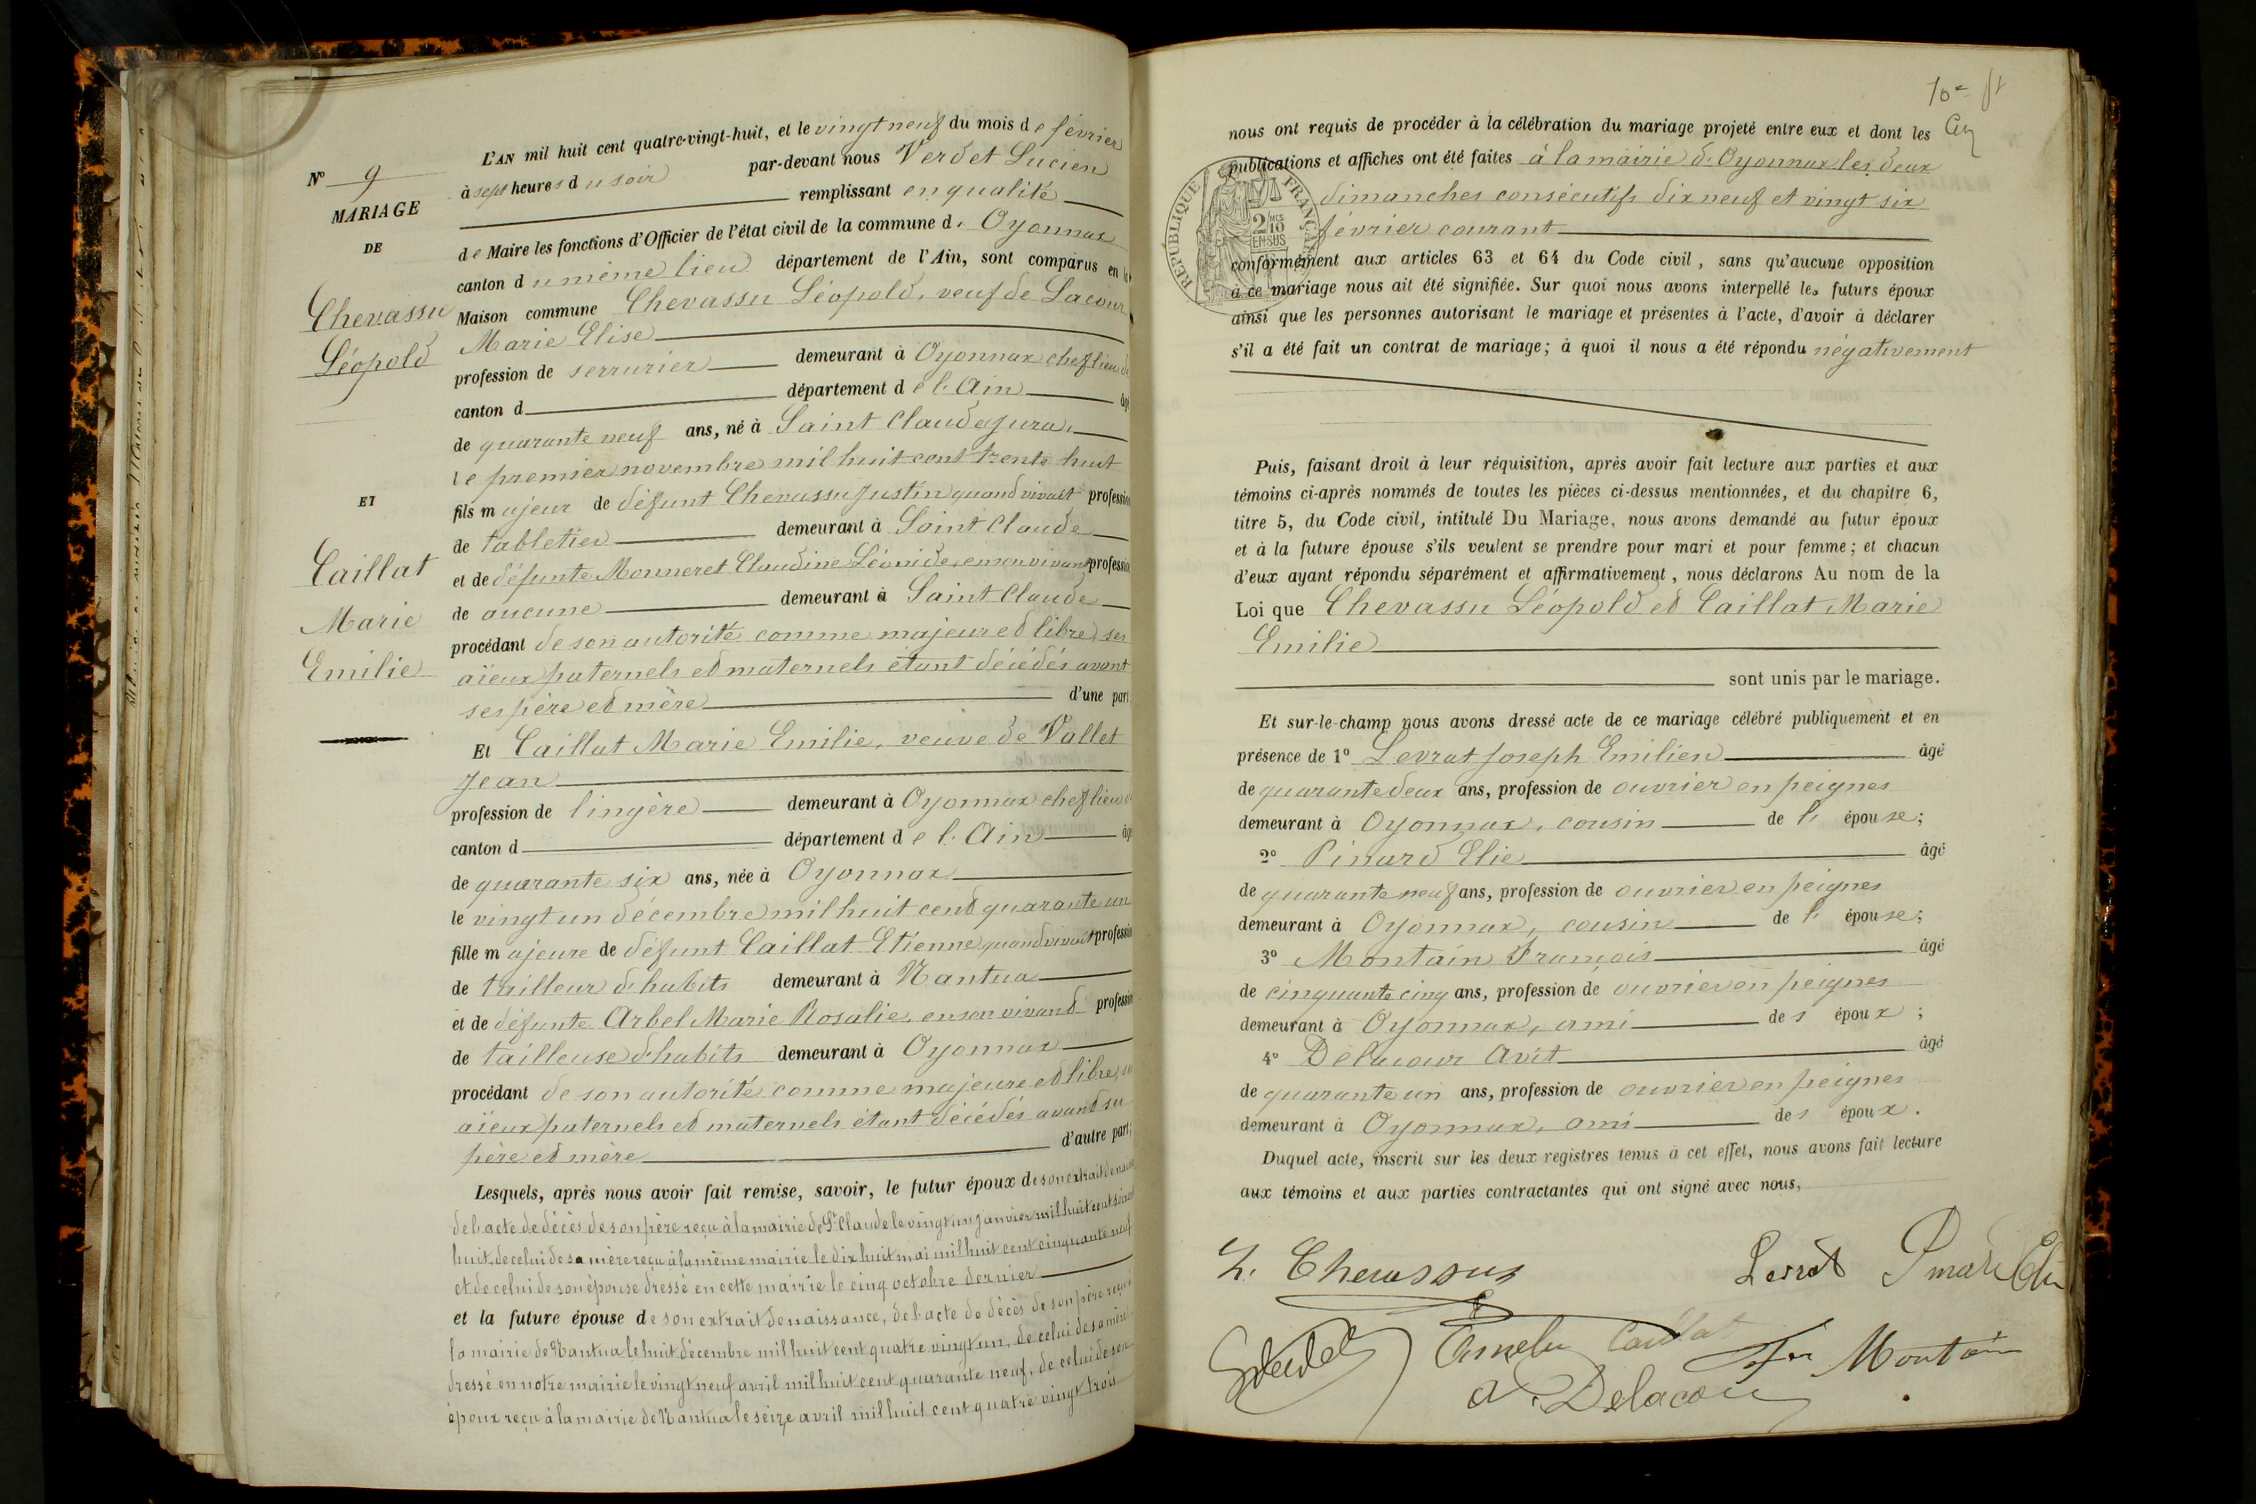 N° 9
MARIAGE
DE
Chevassu
Léopold
ET
Caillat
Marie
Emilie
L'AN mil huit cent quatre-vingt-huit, et le vingt neuf du mois de février
à sept heures du soir par-devant nous Verdet Lucien
remplissant en qualité
de Maire les fonctions d'Officier de l'état civil de la commune d' Oyonnax
canton du même lieu département de l'Ain, sont comparus en la
Maison commune Chevassu Léopold, veuf de Lacour
Marie Elise
profession de serrurier demeurant à Oyonnax chef lieu de
canton d département de l'Ain âgé
de quarante neuf ans, né à Saint Claude Jura,
le premier novembre mil huit cent trente huit
fils majeur de défunt Chevassu Justin quand vivait profession
de tabletier demeurant à Saint Claude
et de défunte Monneret Claudine Léonide, en son vivant profession
de aucune demeurant à Saint Claude
procédant de son autorité comme majeur et libre, ses
aïeux paternels et maternels étant décédés avant
ses père et mère d'une part
Et Caillat Marie Emilie, veuve de Vallet
Jean
profession de lingère demeurant à Oyonnax chef lieu de
canton d département de l'Ain âgé
de quarante six ans, née à Oyonnax
le vingt un décembre mil huit cent quarante un
fille majeure de défunt Caillat Etienne quand vivait profession
de tailleur d'habits demeurant à Nantua
et de défunte Arbel Marie Rosalie, en son vivant profession
de tailleuse d'habits demeurant à Oyonnax
procédant de son autorité comme majeure et libre, ses
aïeux paternels et maternels étant décédés avant ses
père et mère d'autre part;
Lesquels, après nous avoir fait remise, savoir, le futur époux de son extrait de naissance
de l'acte de décès de son père reçu à la mairie de St Claude le vingt un janvier mil huit cent soixante
huit, de celui de sa mère reçu à la même mairie le dix huit mai mil huit cent cinquante neuf
et de celui de son épouse dressé en cette mairie le cinq octobre dernier
et la future épouse de son extrait de naissance, de l'acte de décès de son père reçu à
la mairie de Nantua le huit décembre mil huit cent quatre vingt un, de celui de sa mère
dressé en notre mairie le vingt neuf avril mil huit cent quarante neuf, de celui de son
époux reçu à la mairie de Nantua le seize avril mil huit cent quatre vingt trois
10e ft
nous ont requis de procéder à la célébration du mariage projeté entre eux et dont les
publications et affiches ont été faites à la mairie d'Oyonnax les deux
dimanches consécutifs dix neuf et vingt six
février courant
REPUBLIQUE FRANÇAISE
2/10 EN SUS
conformément aux articles 63 et 64 du Code civil, sans qu'aucune opposition
à ce mariage nous ait été signifiée. Sur quoi nous avons interpellé les futurs époux
ainsi que les personnes autorisant le mariage et présentes à l'acte, d'avoir à déclarer
s'il a été fait un contrat de mariage; à quoi il nous a été répondu négativement
Puis, faisant droit à leur réquisition, après avoir fait lecture aux parties et aux
témoins ci-après nommés de toutes les pièces ci-dessus mentionnées, et du chapitre 6,
titre 5, du Code civil, intitulé Du Mariage, nous avons demandé au futur époux
et à la future épouse s'ils veulent se prendre pour mari et pour femme; et chacun
d'eux ayant répondu séparément et affirmativement, nous déclarons Au nom de la
Loi que Chevassu Léopold et Caillat Marie
Emilie
sont unis par le mariage.
Et sur-le-champ nous avons dressé acte de ce mariage célébré publiquement et en
présence de 1° Levrat Joseph Emilien âgé
de quarante deux ans, profession de ouvrier en peignes
demeurant à Oyonnax, cousin de l' épouse;
2° Pinard Elie âgé
de quarante neuf ans, profession de ouvrier en peignes
demeurant à Oyonnax, cousin de l' épouse;
3° Montain François âgé
de cinquante cinq ans, profession de ouvrier en peignes
demeurant à Oyonnax, ami des époux;
4° Delacour Avit âgé
de quarante un ans, profession de ouvrier en peignes
demeurant à Oyonnax, ami des époux.
Duquel acte, inscrit sur les deux registres tenus à cet effet, nous avons fait lecture
aux témoins et aux parties contractantes qui ont signé avec nous,
L. Chevassus
Levrat
Pinard Elie
Verdet
Emelie Caillat
Montain
a. Delacour